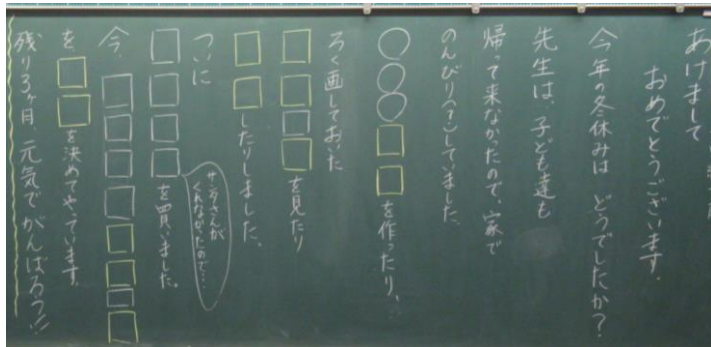 あけまして
おめでとうございます。
今年の冬休みは どうでしたか?
先生は、子ども達も
帰って来なかったので、家で
のんびり(?)していました。
○○○□□を作ったり、
ろく画しておいた
□□□□を見たり
□□したりしました。
ついに
□□□□を買いました。
サンタさんが
くれなかったので…
今、□□□□□□□□
を□□を決めてやっています。
残り3ヶ月、元気でがんばろう!!